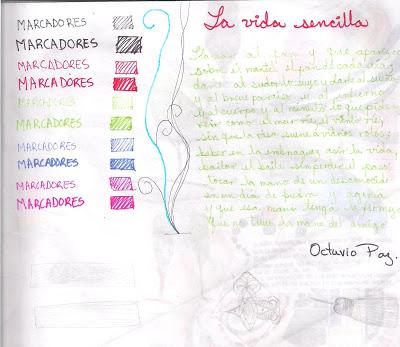 MARCADORES
MARCADORES
MARCADORES
MARCADORES
MARCADORES
MARCADORES
MARCADORES
MARCADORES
MARCADORES
MARCADORES
La vida sencilla
Llamar al pan y que aparezca
sobre el mantel el pan de cada día
darle al sudor lo suyo y darle al sueño
y al breve paraíso y al infierno
y al cuerpo y al minuto lo que piden
reír como el mar ríe, el viento ríe,
sin que la risa suene a vidrios rotos;
beber en la embriaguez asir la vida,
bailar el baile sin perder el paso,
tocar la mano de un desconocido
en un día de piedra agonía
y que esa mano tenga la firmeza
que no tuvo la mano del amigo
Octavio Paz.